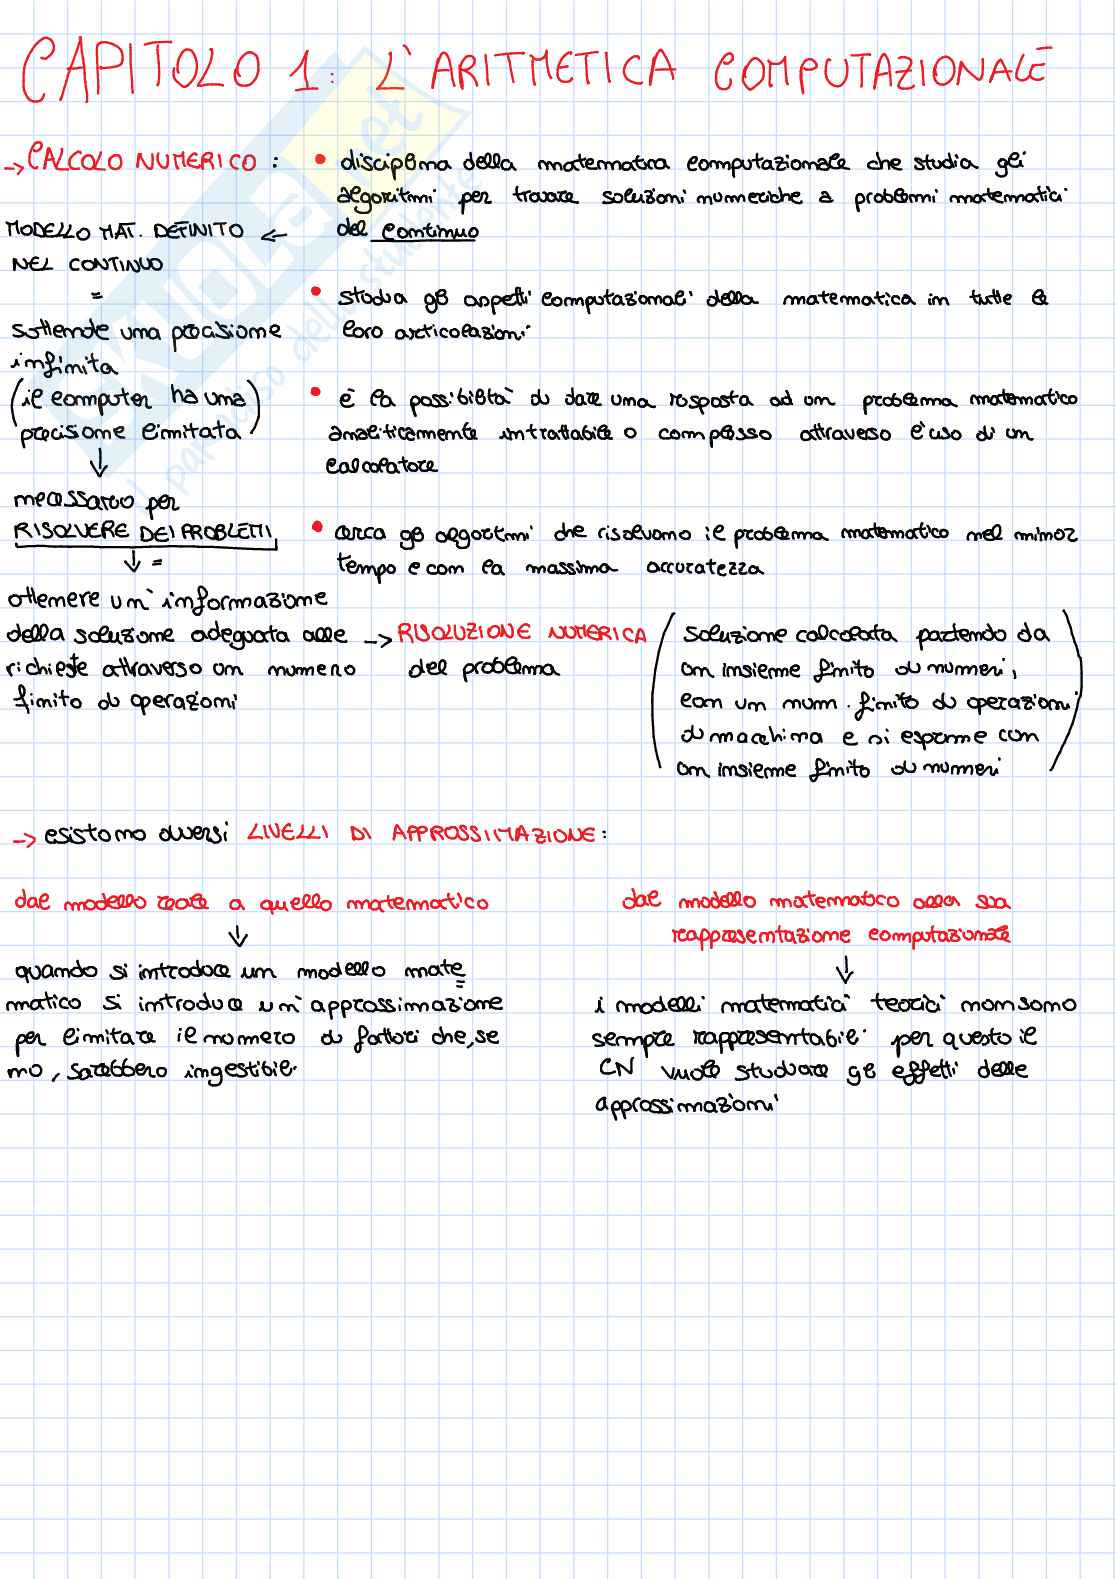 CAPITOLO 1: L'ARITMETICA COMPUTAZIONALE
→ CALCOLO NUMERICO :
• disciplina della matematica computazionale che studia gli
algoritmi per trovare soluzioni numeriche a problemi matematici
del continuo
MODELLO MAT. DEFINITO ←
NEL CONTINUO
=
sottende una precisione
infinita
(il computer ha una
precisione limitata)
↓
necessario per
RISOLVERE DEI PROBLEMI
↓ =
ottenere un'informazione
della soluzione adeguata alle
richieste attraverso un numero
finito di operazioni
• studia gli aspetti computazionali della matematica in tutte le
loro articolazioni
• è la possibilità di dare una risposta ad un problema matematico
analiticamente intrattabile o complesso attraverso l'uso di un
calcolatore
• cerca gli algoritmi che risolvono il problema matematico nel minor
tempo e con la massima accuratezza
→ RISOLUZIONE NUMERICA
del problema
(soluzione calcolata partendo da
un insieme finito di numeri,
con un num. finito di operazioni
di macchina e si esprime con
un insieme finito di numeri)
→ esistono diversi LIVELLI DI APPROSSIMAZIONE:
dal modello reale a quello matematico
↓
quando si introduce un modello mate
matico si introduce un'approssimazione
per limitare il numero di fattori che, se
no, sarebbero ingestibili.
dal modello matematico alla sua
rappresentazione computazionale
↓
i modelli matematici teorici non sono
sempre rappresentabili per questo il
CN vuole studiare gli effetti delle
approssimazioni
SKUOLA.net
il paradiso dello studente